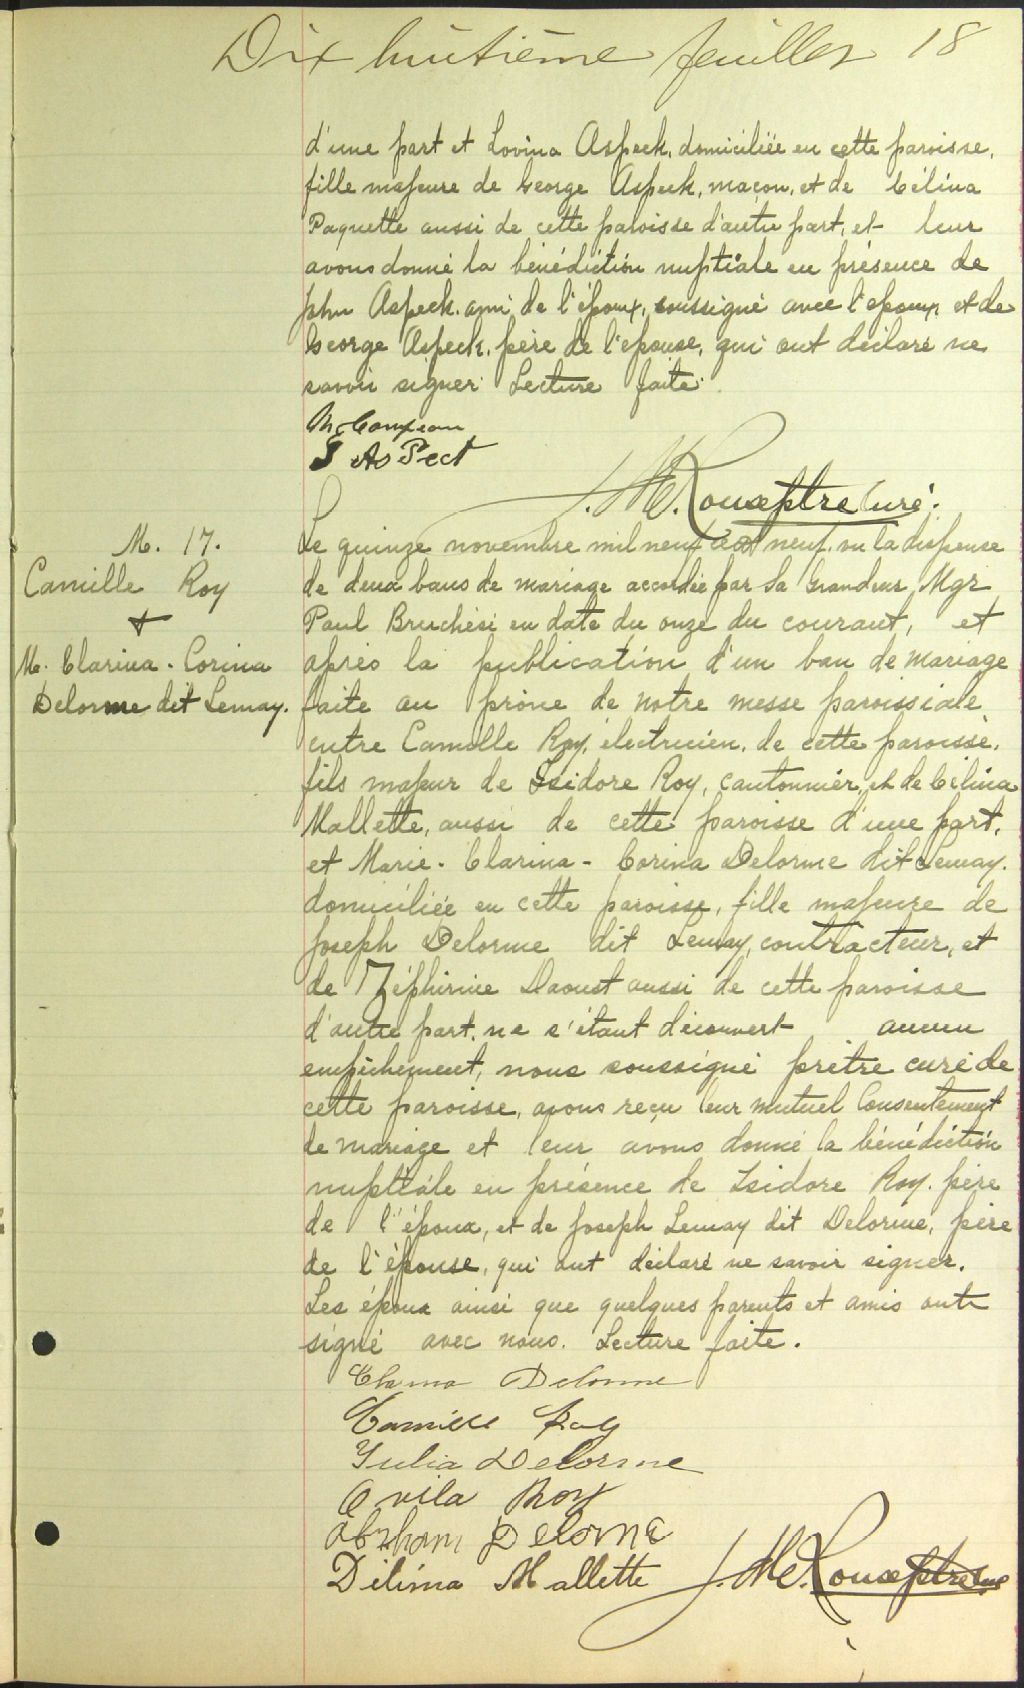 Dix huitième feuillet 18
d'une part et Lovina Aspeck, domiciliée en cette paroisse,
fille majeure de George Aspeck, maçon, et de Célina
Paquette aussi de cette paroisse d'autre part, et leur
avons donné la bénédiction nuptiale en présence de
John Aspeck, ami de l'époux, soussigné avec l'époux, et de
George Aspeck, père de l'épouse, qui ont déclaré ne
savoir signer. Lecture faite.
J As Pect
J. M. Roux ptre curé.
M. 17.
Camille Roy
+
M. Clarina - Corina
Delorme dit Lemay.
Le quinze novembre mil neuf cent neuf, vu la dispense
de deux bans de mariage accordée par Sa Grandeur Mgr
Paul Bruchési en date du onze du courant, et
après la publication d'un ban de mariage
faite au prône de notre messe paroissiale
entre Camille Roy, électricien, de cette paroisse,
fils majeur de Isidore Roy, cantonnier, et de Célina
Mallette, aussi de cette paroisse d'une part,
et Marie - Clarina - Corina Delorme dit Lemay.
domiciliée en cette paroisse, fille majeure de
Joseph Delorme dit Lemay, contracteur, et
de Zéphirine Daoust aussi de cette paroisse
d'autre part, ne s'étant découvert aucun
empêchement, nous soussigné prêtre curé de
cette paroisse, avons reçu leur mutuel Consentement
de mariage et leur avons donné la bénédiction
nuptiale en présence de Isidore Roy. père
de l'époux, et de Joseph Lemay dit Delorme, père
de l'épouse, qui ont déclaré ne savoir signer.
Les époux ainsi que quelques parents et amis ont
signé avec nous. Lecture faite.
Delorme
Camille Roy
Julia Delorme
Ovila Roy
Abraham Delorme
Délima Mallette
J. M. Roux ptre curé